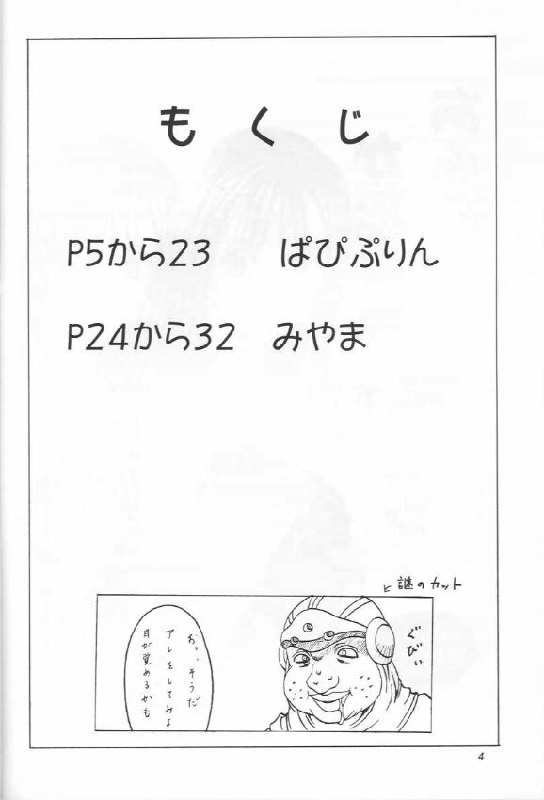 もくじ
P5から23　ぱぴぷりん
P24から32　みやま
謎のカット
お、そうだ
アレをしてみよ
目が覚めるかも
ぐびぃ
4